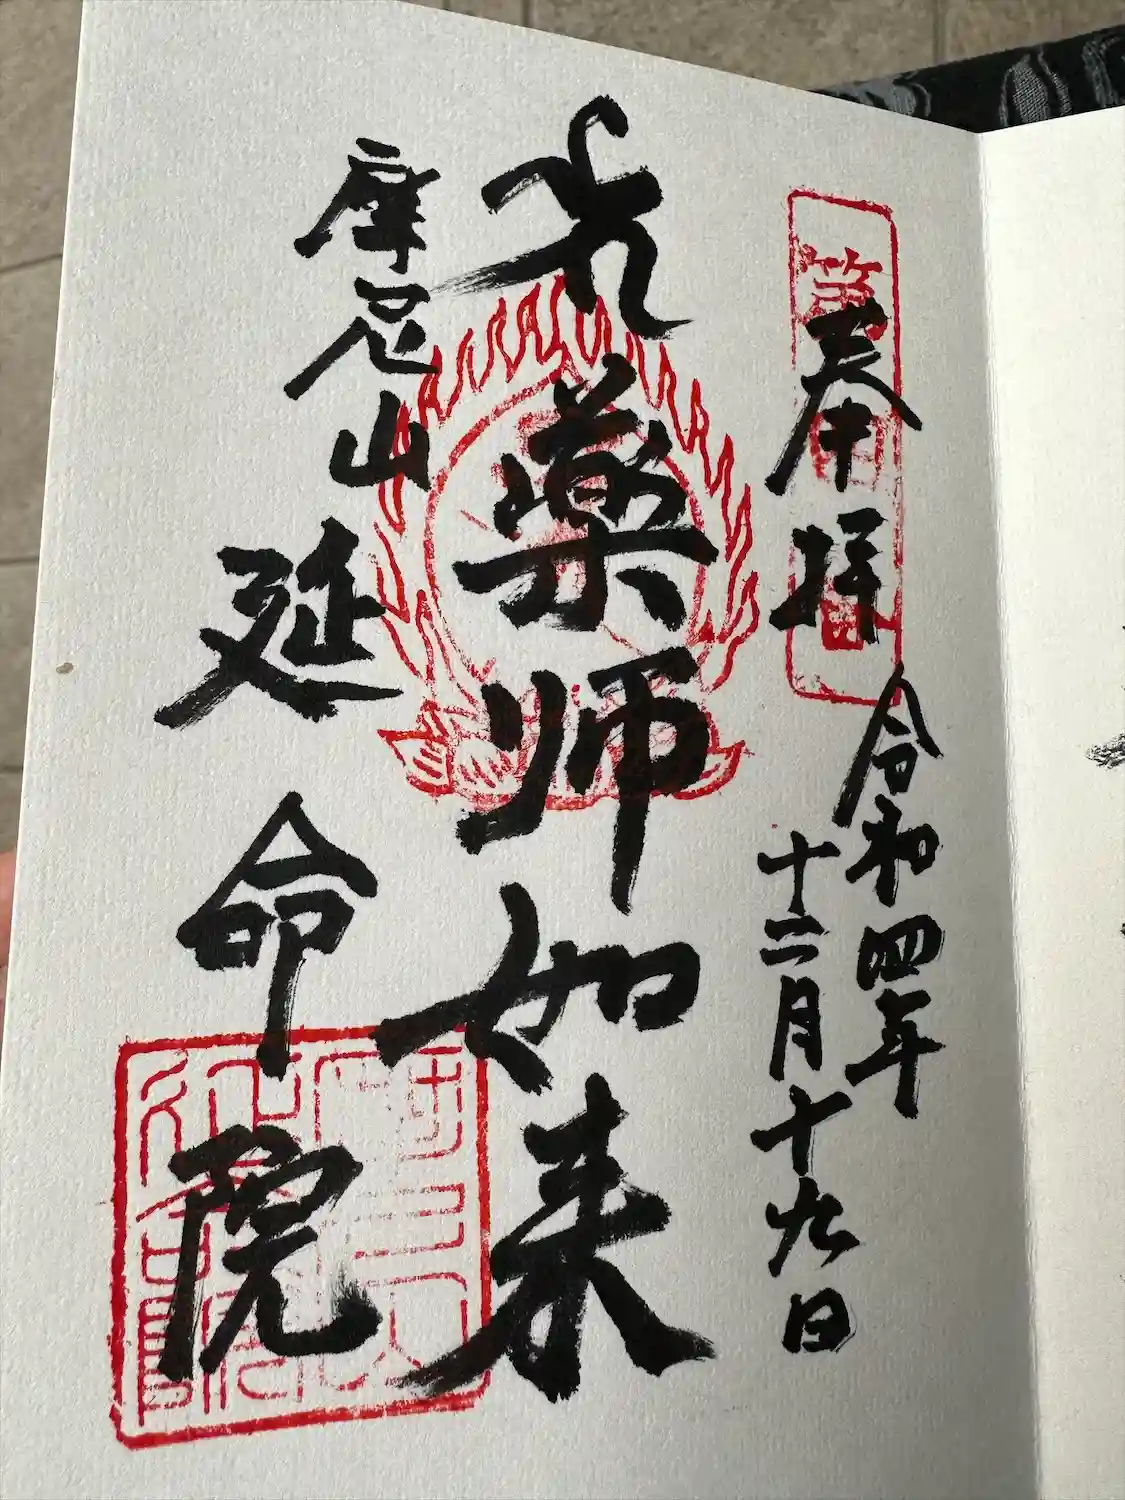 奉拝
令和四年
十二月十九日
薬師如来
摩尼山
延命院